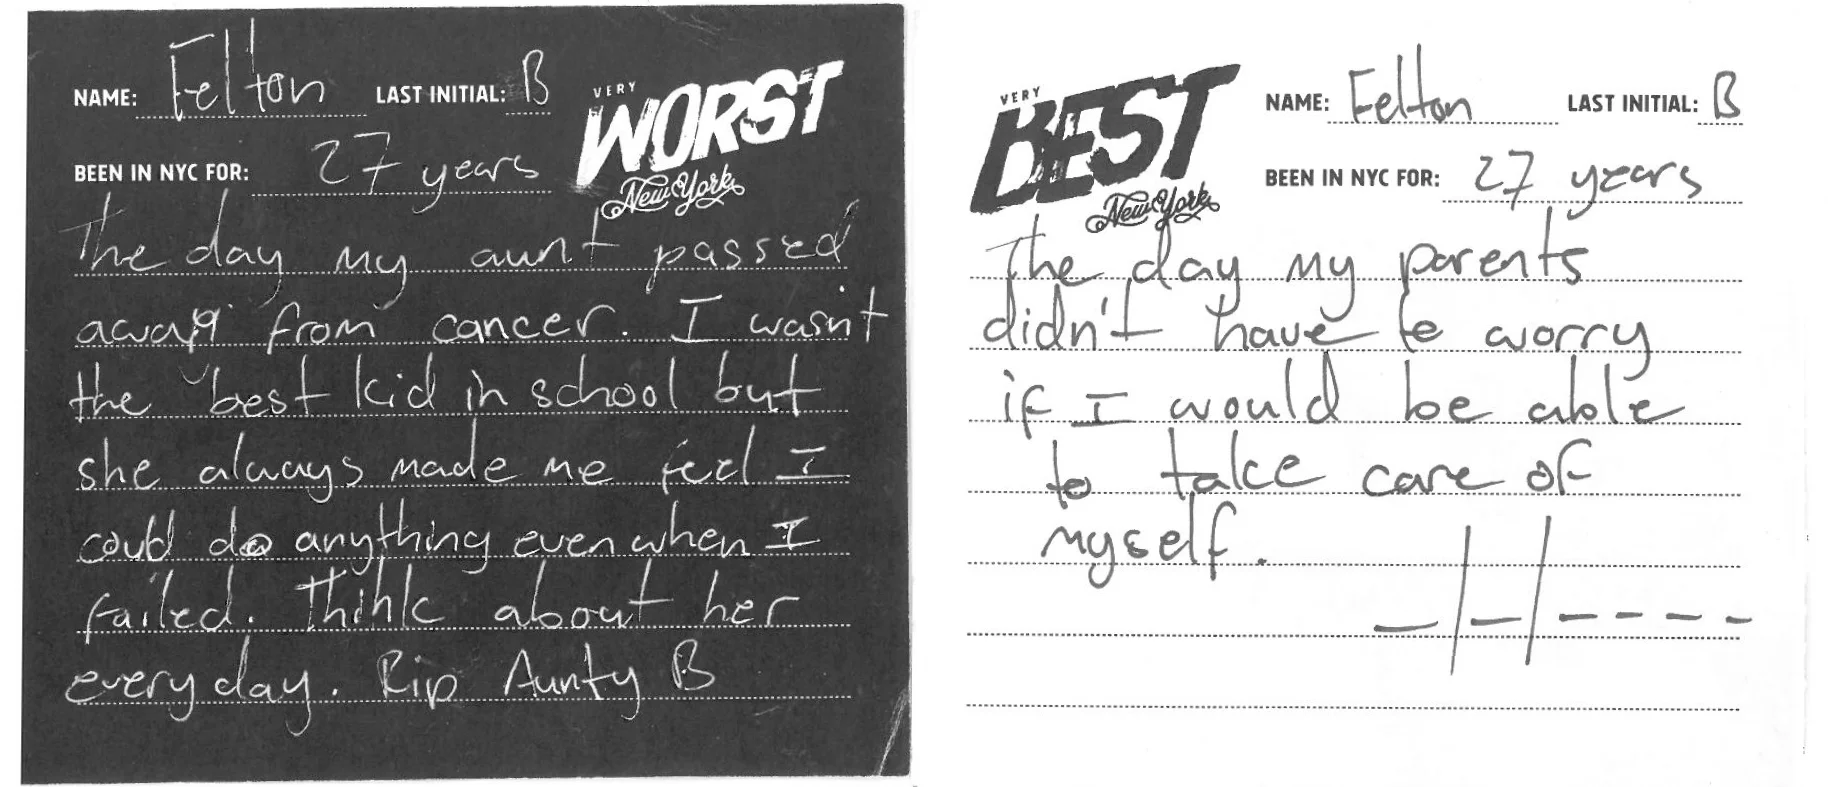 NAME: Felton LAST INITIAL: B
VERY
WORST
New York
BEEN IN NYC FOR: 27 years
The day my aunt passed
away from cancer. I wasn't
the best kid in school but
she always made me feel I
could do anything even when I
failed. Think about her
everyday. Rip Aunty B
VERY
BEST
New York
NAME: Felton LAST INITIAL: B
BEEN IN NYC FOR: 27 years
The day my parents
didn't have to worry
if I would be able
to take care of
myself.
_/_/_ _ _ _